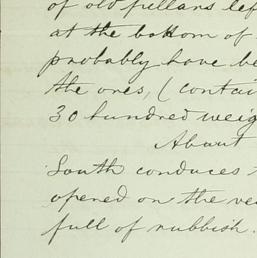 of old pillars lef
at the bottom of
probably have be
the ores, (contai
30 hundred weig
About
South conduces
opened on the ve
full of rubbish.